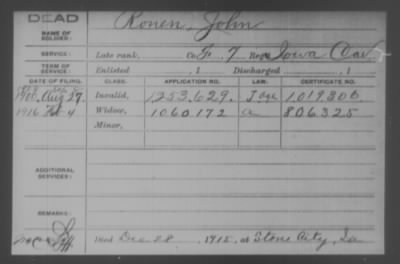 DEAD
NAME OF SOLDIER: Ronen, John
SERVICE: Late rank, Co. G, 7 Reg't Iowa Cav
TERM OF SERVICE: Enlisted , 1 Discharged , 1
DATE OF FILING. CLASS. APPLICATION NO. LAW. CERTIFICATE NO.
1900, Aug 27 Invalid, 1253.629. 1019.306
1916 4 Widow, 1060.172 a 806.325
Minor,
ADDITIONAL SERVICES:
REMARKS:
Died Dec 28, 1915, at Stone City, Ia